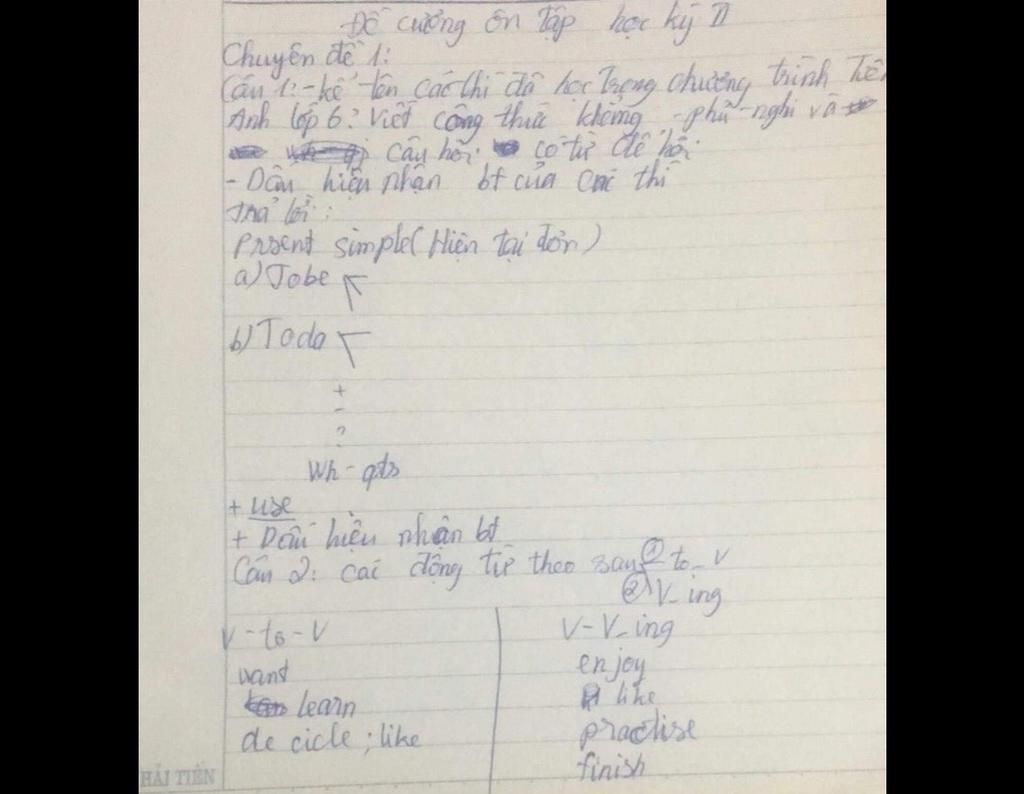 Đề cương ôn tập học kỳ II
Chuyên đề 1:
Câu 1: - kể tên các thì đã học trong chương trình Tiến
Anh lớp 6? Viết công thức khẳng - phủ - nghi và
câu hỏi có từ để hỏi.
- Dấu hiệu nhận bt của các thì
Trả lời:
Prsent simple (Hiện tại đơn)
a) Tobe
b) Todo
+
-
?
Wh - qts
+ use
+ Dấu hiệu nhận bt
Câu 2: các động từ theo sau ① to - V
② V- ing
V - to - V
V - V- ing
want
enjoy
learn
like
decide ; like
practise
finish
HẢI TIẾN